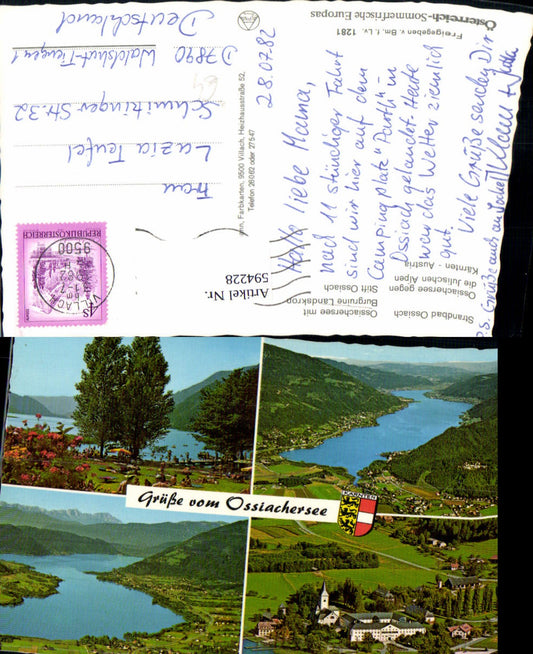 Österreich-Sommerfrische Europas
Freigegeben v. Bm. f. Lv. 1281
28.07.82
Hallo liebe Mama,
nach 11 stündiger Fahrt
sind wir hier auf dem
Campingplatz "Parth" in
Ossiach gelandet. Heute
war das Wetter ziemlich
gut.
Viele Grüße senden Dir
P.S. Grüße auch an
Frau
Luzia Teufel
Schmitzinger Str. 32
D 7890 Waldshut-Tiengen 1
Deutschland
Farbkarten, 9500 Villach, Heizhausstraße 52,
Telefon 26062 oder 27547
REPUBLIK ÖSTERREICH
9500
VILLACH
4S
Artikel Nr.
594228
Strandbad Ossiach
Ossiachersee gegen
die Julischen Alpen
Kärnten - Austria
Ossiachersee mit
Burgruine Landskron
Stift Ossiach
Grüße vom Ossiachersee
KÄRNTEN